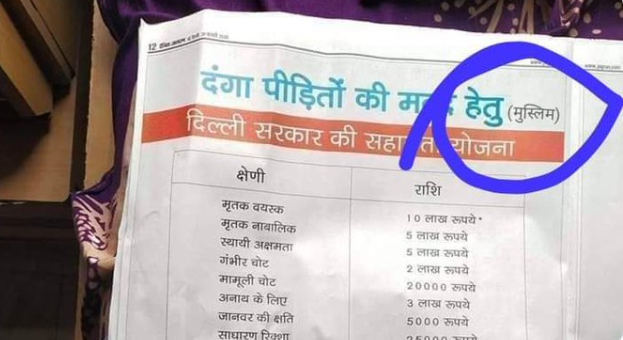 12
दंगा पीड़ितों की मदद हेतु (मुस्लिम)
दिल्ली सरकार की सहायता योजना
क्षेणी राशि
मृतक वयस्क 10 लाख रूपये*
मृतक नाबालिक 5 लाख रूपये
स्थायी अक्षमता 5 लाख रूपये
गंभीर चोट 2 लाख रूपये
मामूली चोट 20000 रूपये
अनाथ के लिए 3 लाख रूपये
जानवर की क्षति 5000 रूपये
साधारण रिक्शा 25000 रूपये